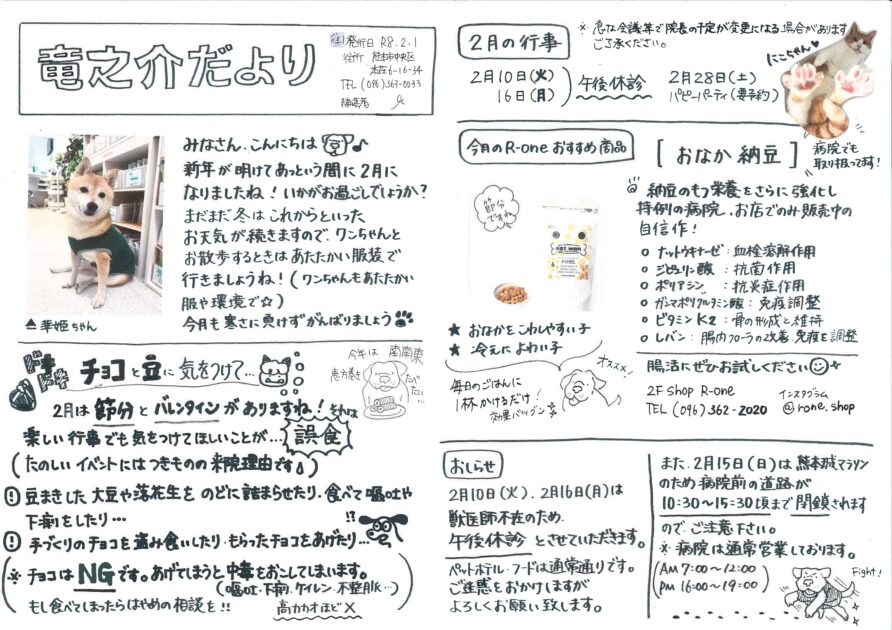 竜之介だより
発行日 R8.2.1
住所 熊本市中央区
本荘6-16-34
TEL (096)363-0033
編集者
みなさん、こんにちは♪
新年が明けてあっという間に2月に
なりましたね!いかがお過ごしでしょうか?
まだまだ冬はこれからといった
お天気が続きますので、ワンちゃんと
お散歩するときはあたたかい服装で
行きましょうね!(ワンちゃんもあたたかい
服や環境で☆)
今月も寒さに負けずがんばりましょう
▲華姫ちゃん
ドキドキ チョコと豆に気をつけて…
今年は 南南東
恵方巻き
たべたい…
2月は節分とバレンタインがありますね!それは
楽しい行事でも気をつけてほしいことが… 誤食
(たのしいイベントにはつきものの来院理由です)
! 豆まきした大豆や落花生をのどに詰まらせたり、食べて嘔吐や
下痢をしたり…
!?
! 手づくりのチョコを盗み食いしたり、もらったチョコをあげたり…
※チョコはNGです。あげてしまうと中毒をおこしてしまいます。
(嘔吐・下痢、ケイレン・不整脈…)
もし食べてしまったらはやめの相談を!!
高カカオほど×
2月の行事
※急な会議等で院長の予定が変更になる場合があります
ご了承ください。
にこちゃん♥
2月10日(火)
16日(月)
午後休診
2月28日(土)
パピーパーティ(要予約)
今月のR-oneおすすめ商品
[おなか納豆]
病院でも
取り扱ってます!
節分
ですね
納豆のもつ栄養をさらに強化し
特例の病院、お店でのみ販売中の
自信作!
○ ナットウキナーゼ:血栓溶解作用
○ ジピコリン酸:抗菌作用
○ ポリアミン:抗炎症作用
○ ガンマポリグルタミン酸:免疫調整
○ ビタミンK2:骨の形成と維持
○ レバン:腸内フローラの改善、免疫を調整
★ おなかをこわしやすい子
★ 冷えによわい子
毎日のごはんに
1杯かけるだけ!
効果バツグン
オススメ!
腸活にぜひお試しください
2F shop R-one
TEL (096)362-2020
インスタグラム
@rone.shop
おしらせ
2月10日(火)、2月16日(月)は
獣医師不在のため、
午後休診とさせていただきます。
ペットホテル・フードは通常通りです。
ご迷惑をおかけしますが
よろしくお願い致します。
また、2月15日(日)は熊本城マラソン
のため病院前の道路が
10:30〜15:30頃まで閉鎖されます
ので、ご注意下さい。
※病院は通常営業しております。
(AM 7:00〜12:00
PM 16:00〜19:00)
Fight!